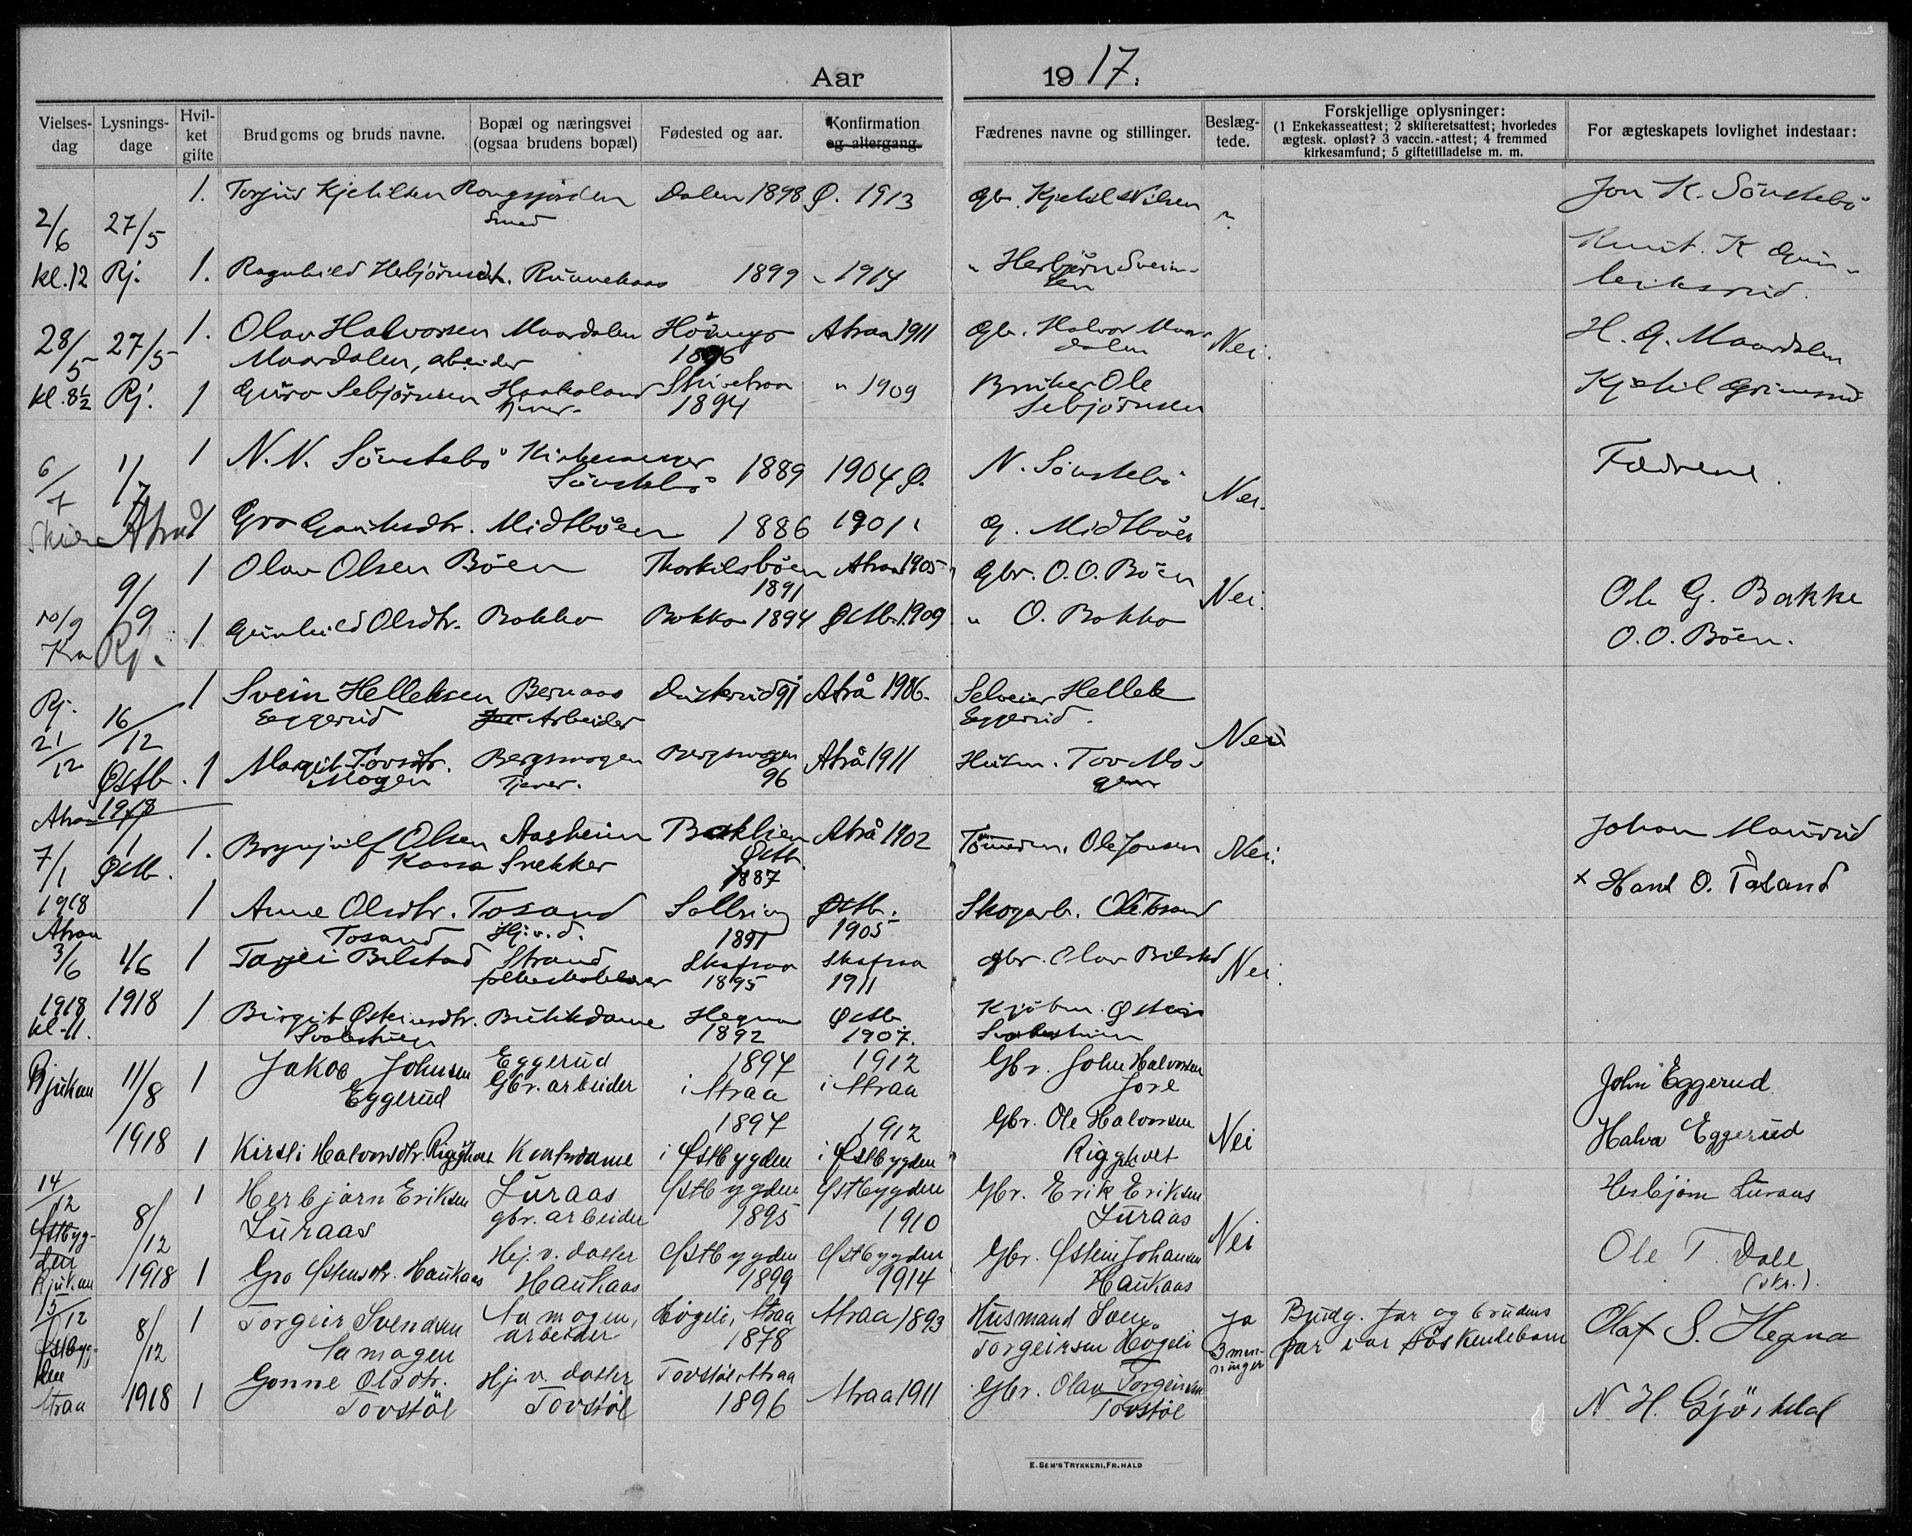 Aar 1917.
Vielses-dag Lysnings-dage Hvil-ket gifte Brudgoms og bruds navne. Bopæl og næringsvei (ogsaa brudens bopæl) Fødested og aar. Konfirmation og altergang. Fædrenes navne og stillinger. Beslæg-tede. Forskjellige oplysninger: (1 Enkekasseattest; 2 skifteretsattest; hvorledes ægtesk. opløst? 3 vaccin.-attest; 4 fremmed kirkesamfund; 5 giftetilladelse m. m. For ægteskapets lovlighet indestaar:
1. Torjus Kjetilsen Dalen 1898 Ø. 1913 Gbr. Kjetil Nilsen Jon K. Sønstebø
2/6 27/5 Smed
Knut K
kl. 12 Rj. 1. Ragnhild Herbjørnsdt. 1899 " 1914 " Herbjørn Svein-sen
1. Olav Halvorsen Maardalen Atraa 1911 Gbr. Halvor Maar- H. G. Maardalen
28/5 27/5 Maardalen, arbeider 1896 dalen Nei.
kl. 8½ Rj. 1 Guro Sebjørnsen Haakaland " 1909 Bruker Ole Kjetil Grimsrud
Tjener. 1894 Sebjørnsen
6/7 1/7 1 N. N. Sønstebø Kirkesanger 1889 1904 Ø. N. Sønstebø Fædrene.
Sønstebø Nei.
Atraa 1 Gro Gautesdtr. Midtbøen 1886 1901 G. Midtbøen
9/9 1 Olav Olsen Bøen Thorkilsbøen Atraa 1905 Gbr. O. O. Bøen Nei.
1891 Ole G. Bakke
10/9 Rj. 1 Gunhild Olsdtr. Bakka Bokko 1894 Østb. 1909 " O. Bokko O. O. Bøen.
Rj. 1 Svein Helleksen Bernaas 91 Atrå 1906. Selveier Hellek
21/12 16/12 Eggerud Arbeider Eggerud. Nei
Østb. 1 Margit Tovsdtr. Bergsmogen Bergsmogen Atrå 1911 Husm. Tov Mo-
Mogen Tjener. 96 gen
Atraa 1918
7/1 1/1 1. Brynjulf Olsen Aasheim Baklien Atrå 1902 Tømmerm. Ole Jonsen Nei. Johan Maurud
Østb. Kaasa Snekker Østb. 1887
1918 1 Anne Olsdtr. Tosand Østb. Skogarb. Ole Tosand × Hans O. Tosand
Atraa Tosand Hj.v.d. 1891 1905
3/6 1/6 1 Tarjei Bilstad Strand Skafsaa Skafsaa gbr. Olav Bilstad Nei.
1895 1911
1918 1918 1 Birgit Østensdtr. Butikdame Hegna Østb. Kjøbm. Østein
kl. 11. 1892 1907.
Rjukan 11/8 1 Jakob Johnsen Eggerud 1894 1912 Gbr. John Halvorsen
Eggerud Gbr. arbeider i Atraa i Atraa Jore John Eggerud
1894 1912 Gbr. Ole Halvorsen Nei
1918 1 Kirsti Halvorsdtr. Kontordame i Østbygden i Østbygden Riggkvet Halvor Eggerud
14/12 1 Herbjørn Eriksen Luraas Østbygden Østbygden Gbr. Erik Eriksen Herbjørn Luraas
Østbyg- 8/12 Luraas gbr. arbeider 1895 1910 Luraas Nei
den Hj. v. datter Østbygden Østbygden Gbr. Østein Johansen Ole T. Dale
Rjukan 1918 1 Gro Østensdtr. Haukaas Haukaas 1899 1914 Haukaas (Skr.).
15/12 8/12 1 Torgeir Svendsen Samogen, Høgeli, Atraa Atraa 1893 Husmand Svein Ja Brudg. far og brudens Olaf S. Hegna
Østbyg- Samogen arbeider 1878 Torgeirsen Høgeli 3 men-ninger far var søskendebarn
den Gonne Olsdtr. Hj. v. datter Tovstøl Atraa Gbr. Olav Torgeirsen
Atraa 1918 1 Tovstøl Tovstøl 1896 Atraa 1911 Tovstøl
E. SEM'S TRYKKERI, FR.HALD